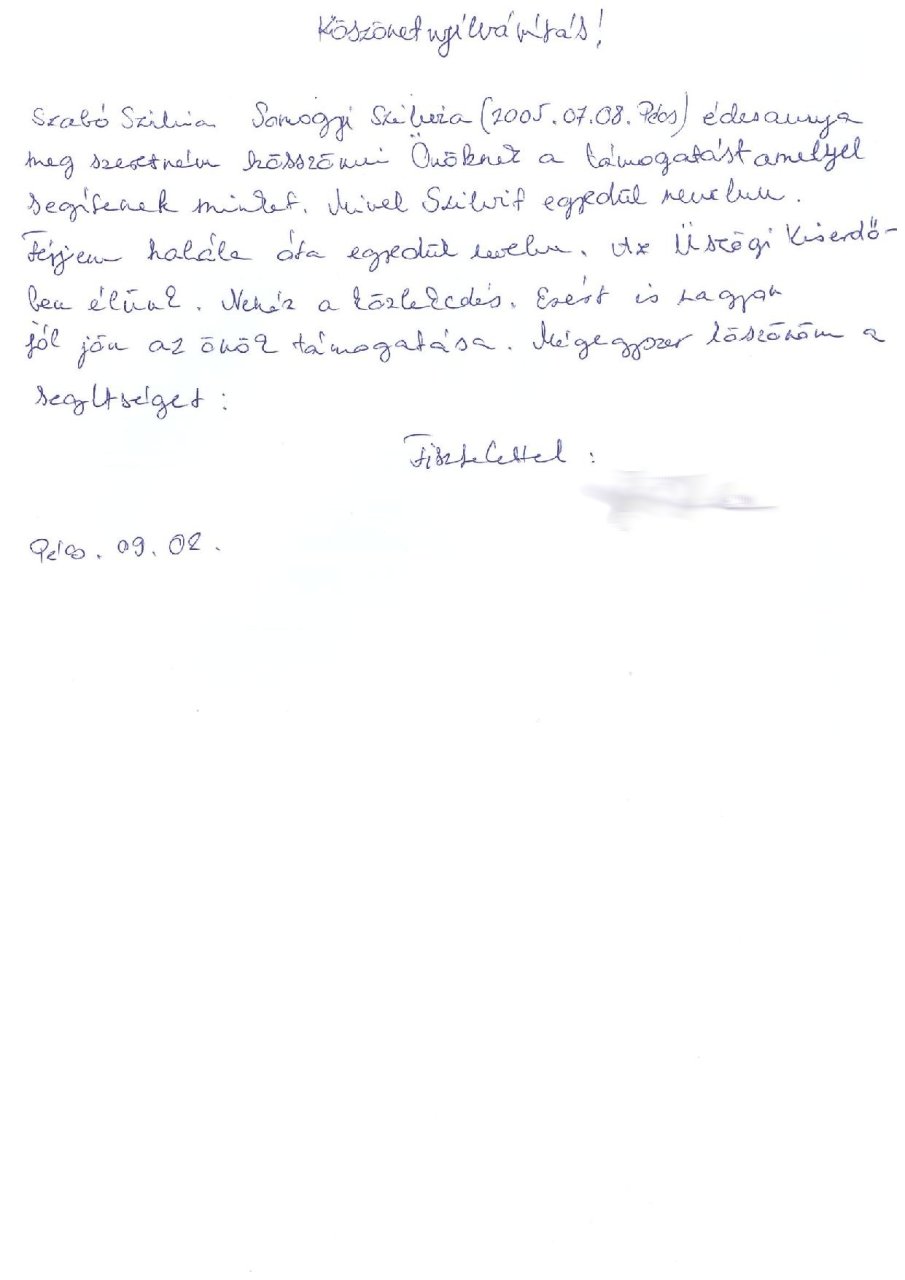 Köszönetnyílvánítás!
Szabó Szilvia Somogyi Szilvia (2005.07.08. Pécs) édesanyja
meg szeretném kösszönni Önöknek a támogatást amelyel
segítenek minket. Mivel Szilvit egyedül nevelem.
Férjem halála óta egyedül nevelem. Az Üszögi Kiserdő-
ben élünk. Nehéz a közlekedés. Ezért is nagyon
jól jön az önök támogatása. Mégegyszer köszönöm a
segítséget:
Tisztelettel :
Pécs. 09. 02.